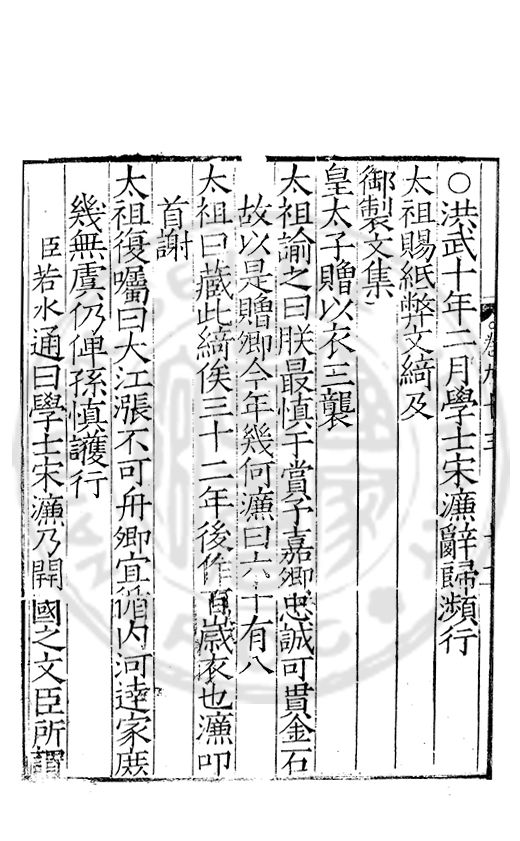 ○洪武十年二月學士宋濂辭歸瀕行
太祖賜紙幣文綺及
御製文集
皇太子贈以衣三襲
太祖諭之曰朕最慎于賞予嘉卿忠誠可貫金石
故以是贈卿今年幾何濂曰六十有八
太祖曰藏此綺俟三十二年後作百歲衣也濂叩
首謝
太祖復囑曰大江漲不可舟卿宜循內河逹家庶
幾無虞仍俾孫慎護行
臣若水通曰學士宋濂乃開國之文臣所謂